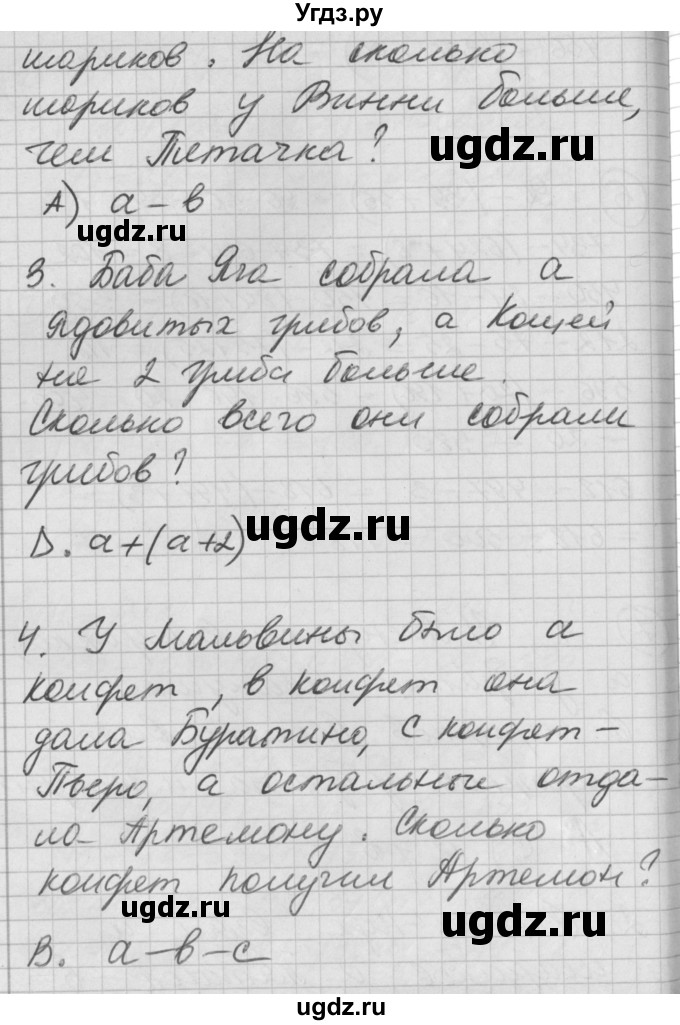 Угдз.ру
шариков. На сколько
шариков у Винни больше,
чем Пятачка?
ugdz.ru
А) а – в
ugdz.ru
3. Баба Яга собрала а
ядовитых грибов, а Кощей
на 2 гриба больше.
Сколько всего они собрали
грибов?
D. а+(а+2)
ugdz.ru
4. У Мальвины было а
конфет, в конфет она
дала Буратино, с конфет –
Пьеро, а остальные отда-
ла Артемону. Сколько
конфет получил Артемон?
ugdz.ru
ugdz.ru
В. а–в–с
ugdz.ru